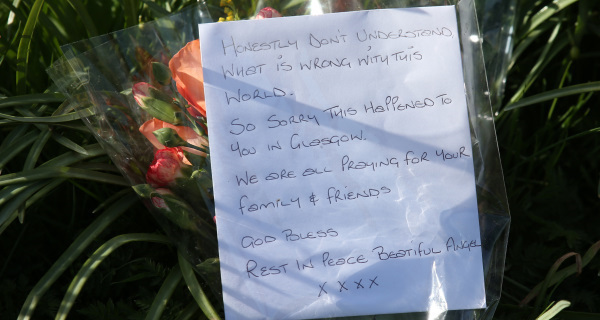 Honestly Don't Understand
What is wrong with this
World.
So Sorry This Happened To
you in Glasgow.
We are all Praying for your
family & friends
God Bless
Rest in Peace Beatiful Angel
x x x x